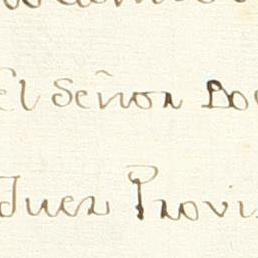 El Señor Do
Juez Provis